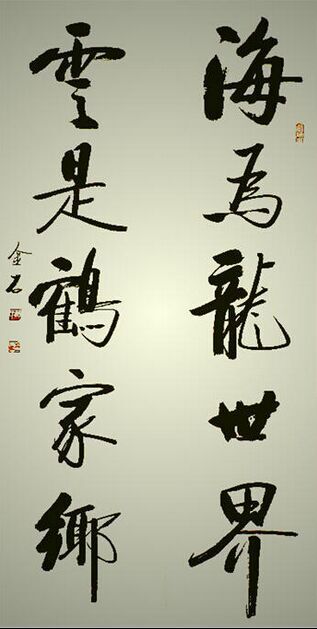 海為龍世界
雲是鶴家鄉
金石